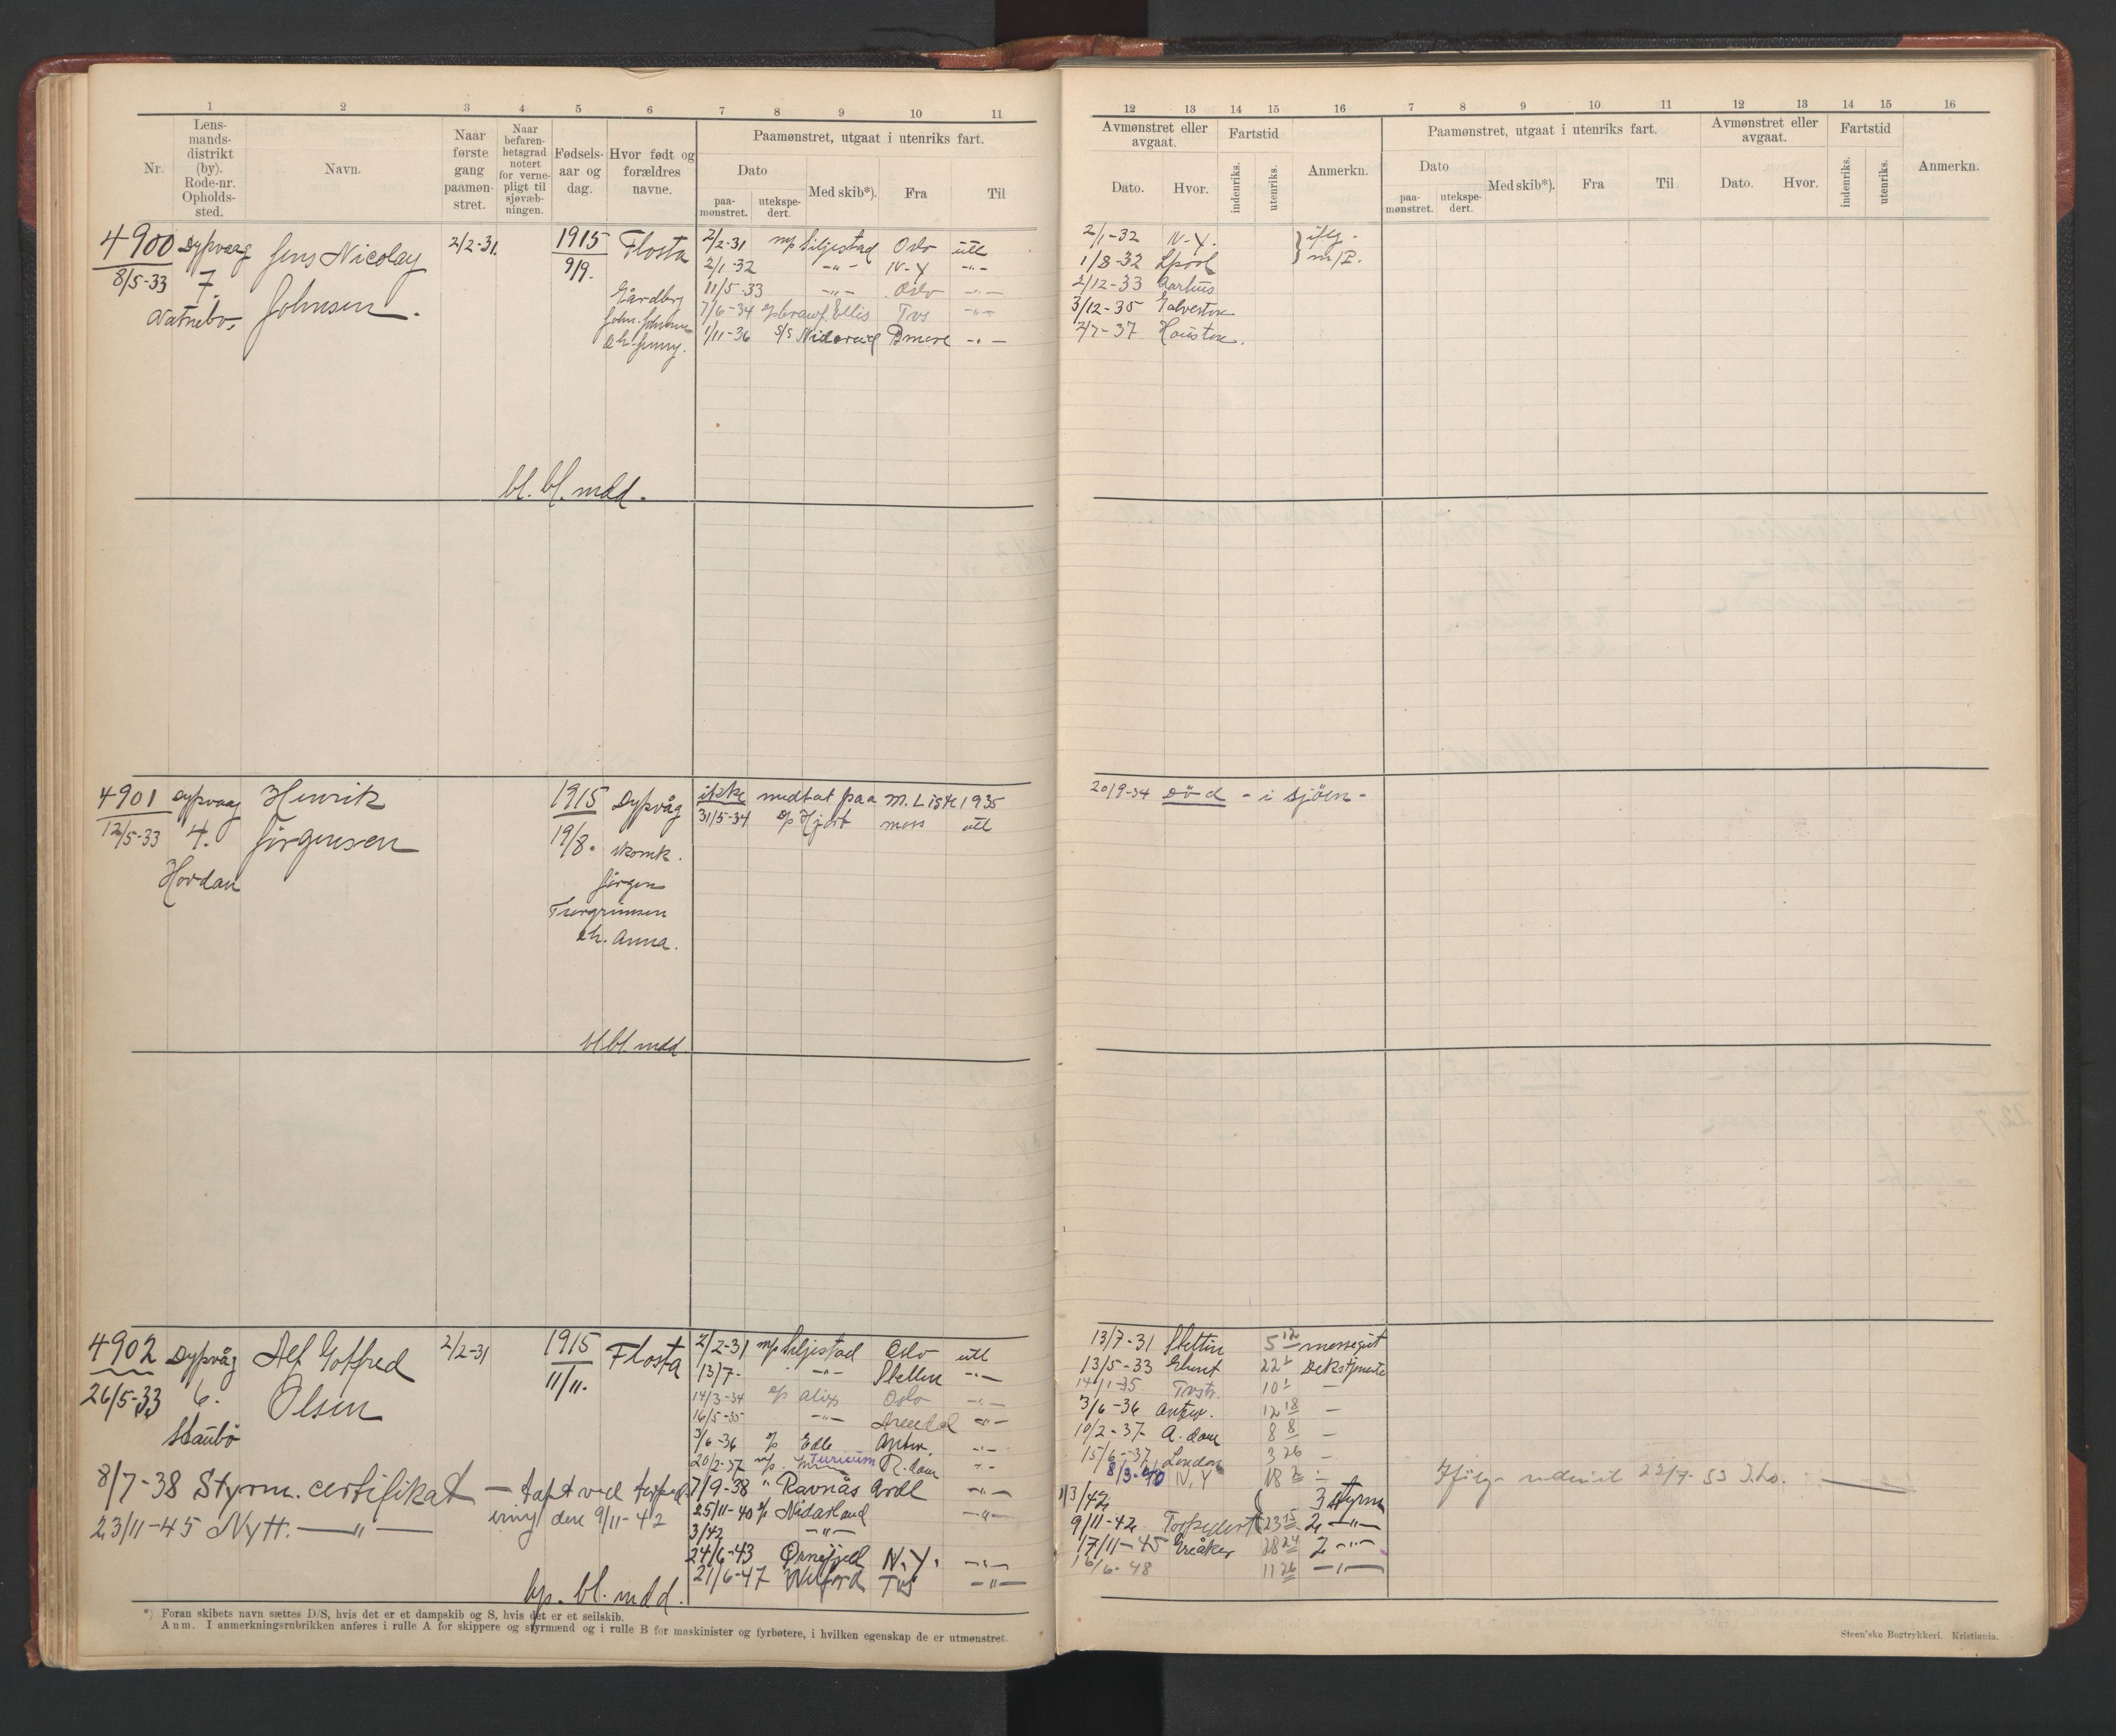 1 2 3 4 5 6 7 8 9 10 11
Nr.
Lens-
mands-
distrikt
(by).
Rode-nr.
Opholds-
sted.
Navn.
Naar
første
gang
paamøn-
stret.
Naar
befaren-
hetsgrad
notert
for verne-
pligt til
sjøvæb-
ningen.
Fødsels-
aar og
dag.
Hvor født og
forældres
navne.
Paamønstret, utgaat i utenriks fart.
Dato
paa-
mønstret.
utekspe-
dert.
Med skib*).
Fra
Til
4900 Dypvaag Jens Nicolay 2/2-31. 1915 Flosta 2/2-31 m/p Siljestad Oslo utl
8/5-33 7. Johnsen. 9/9. 2/1-32 -"- N-Y -"-
11/5-33 -"- Oslo -"-
7/6-34 Ellis Tvs -"-
1/11-36 S/S -"-
John. Johnsen
bl. bl. mdd.
4901 Dypvaag Henrik 1915 Dypvåg ikke medtat paa M. Liste 1935
12/5-33 4. Jørgensen 19/8. 31/5-34 Hjort moss utl
Hovdan
Jørgen
Torgrimsen
ch. Anna.
bl. bl. mdd.
4902 Dypvåg Alf Gotfred 2/2-31 1915 Flosta 2/2-31 m/p Siljestad Oslo utl
26/5-33 6. Olsen 11/11. 13/7- -"- Stettin -"-
Staubø
14/3-34 Alix Oslo -"-
16/5-35 -"- Arendal -"-
3/6-36 Edle Antw. -"-
20/2-37 Turicum R.dam -"-
8/7-38 Styrm. certifikat - tapt ved torped- 7/9-38 " Ravnås Ardl -"-
ering den 9/11-42 25/11-40 Nidarland -"-
23/11-45 Nytt. -"- 3/42 -"-
24/6-43 Ørnefjell N.Y. -"-
21/6-47 Tvs -"-
bl. mdd.
*) Foran skibets navn sættes D/S, hvis det er et dampskib og S, hvis det er et seilskib.
Anm. I anmerkningsrubrikken anføres i rulle A for skippere og styrmænd og i rulle B for maskinister og fyrbøtere, i hvilken egenskap de er utmønstret.
12 13 14 15 16 7 8 9 10 11 12 13 14 15 16
Avmønstret eller
avgaat.
Dato. Hvor.
Fartstid
indenriks.
utenriks.
Anmerkn.
Paamønstret, utgaat i utenriks fart.
Dato
paa-
mønstret.
utekspe-
dert.
Med skib*).
Fra
Til
Avmønstret eller
avgaat.
Dato. Hvor.
Fartstid
indenriks.
utenriks.
Anmerkn.
2/1-32 N-Y. iflg.
1/8-32 Lpool m/P.
2/12-33 Aarhus
3/12-35 Galveston
2/7-37 Houston.
20/9-34 Død - i sjøen -
13/7-31 Stettin 5 12 messegut
13/5-33 22 1
14/1-35 Tvstr. 10 1 -
3/6-36 Antw. 12 18 -
10/2-37 A.dam 8 8 -
15/6-37 London 3 26 -
8/3-40 N.Y 18 2 -
1/3/42 3 styrm
9/11-42 Torpedert 23 15 2 -"-
17/11-45 Greåker 28 24 2 -"-
16/6-48 11 26 -"-
22/7-53
Steen'ske Bogtrykkeri. Kristiania.